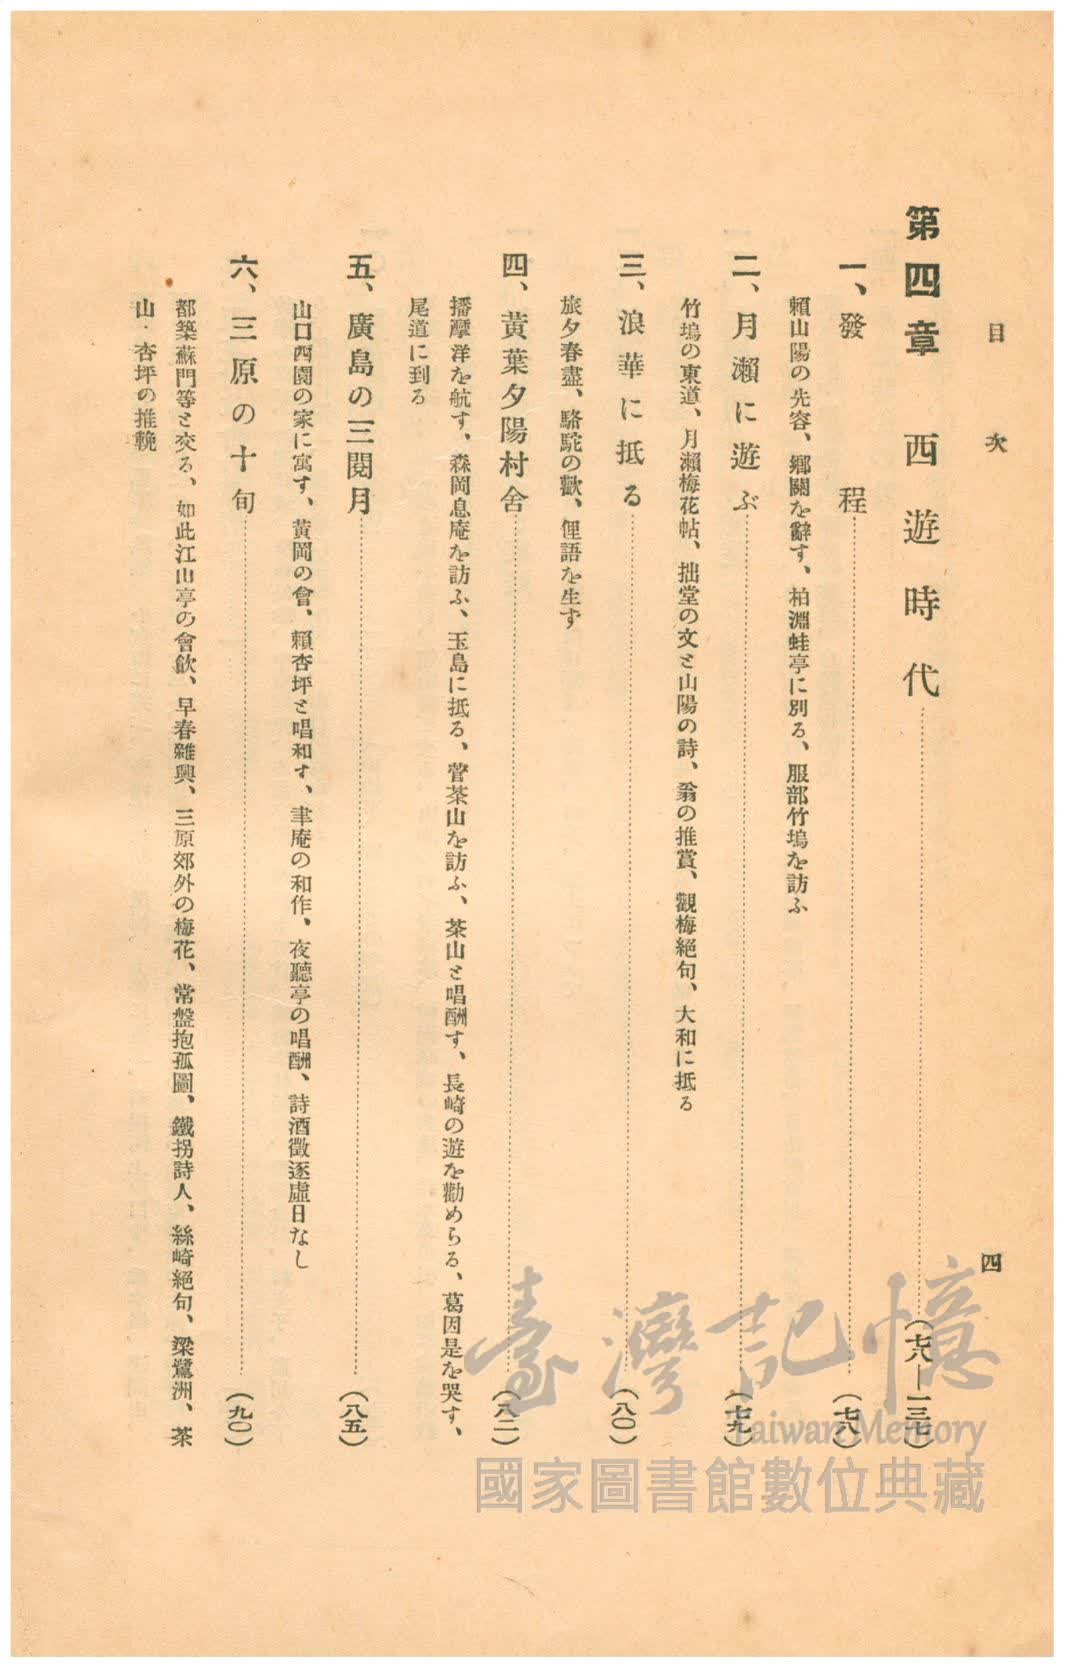 目次
四
第四章 西遊時代……………(七八—一三七)
一、發程……………(七八)
賴山陽の先容、鄉關を辭す、柏淵蛙亭に別る、服部竹塢を訪ふ
二、月瀨に遊ぶ……………(七九)
竹塢の東道、月瀨梅花帖、拙堂の文と山陽の詩、翁の推賞、觀梅絕句、大和に抵る
三、浪華に抵る……………(八〇)
旅夕春盡、駱駝の歡、俚語を生ず
四、黃葉夕陽村舍……………(八二)
播摩洋を航す、森岡息庵を訪ふ、玉島に抵る、菅茶山を訪ふ、茶山と唱酬す、長崎の遊を勸めらる、葛因是を哭す、
尾道に到る
五、廣島の三閱月……………(八五)
山口西園の家に寓す、黃岡の會、賴杏坪と唱和す、聿庵の和作、夜聽亭の唱酬、詩酒徵逐虛日なし
六、三原の十旬……………(九〇)
都築蘇門等と交る、如此江山亭の會飮、早春雜興、三原郊外の梅花、常盤抱孤圖、鐵拐詩人、絲崎絕句、梁鷺洲、茶
山・杏坪の推輓
臺灣記憶
Taiwan Memory
國家圖書館數位典藏